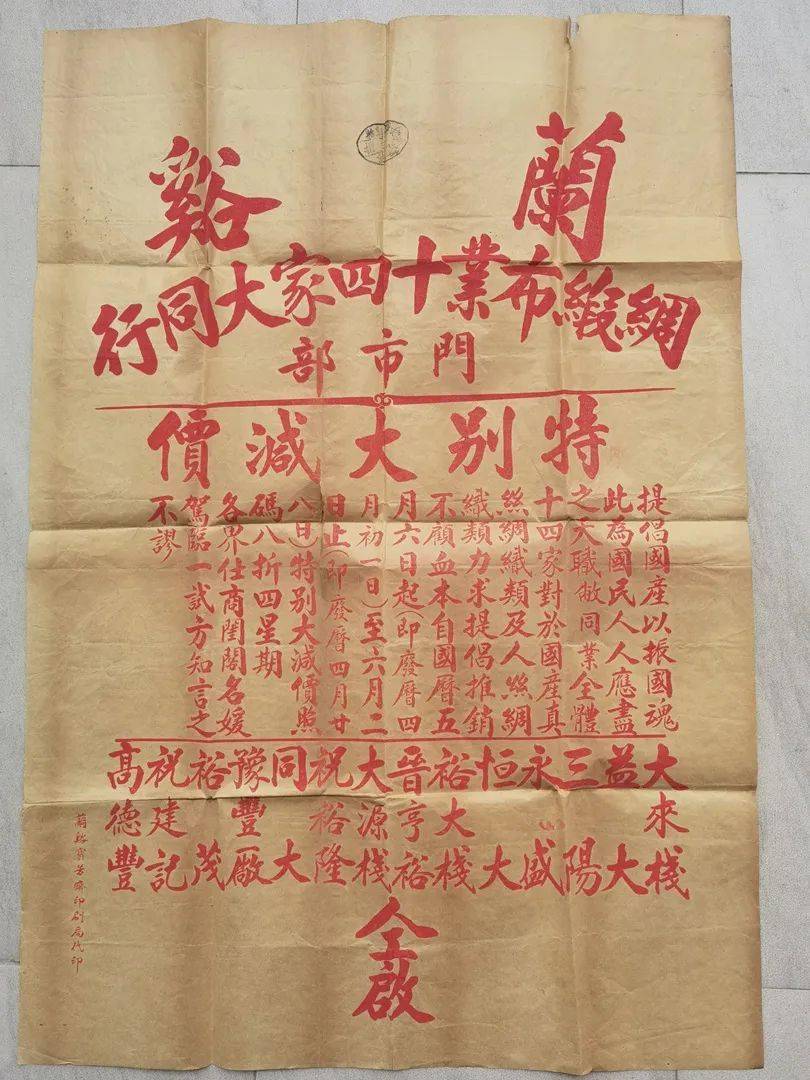 蘭谿
綢緞布業十四家大同行
門市部
特別大減價
提倡國產以振國魂
此為國民人人應盡
之天職敝同業全體
十四家對於國產真
絲綢織類及人絲綢
織類力求提倡推銷
不顧血本自國曆五
月六日起(即廢曆四
月初一日)至六月二
日止(即廢曆四月廿
八日)特別大減價照
碼八折四星期
各界仕商閨閣名媛
駕臨一試方知言之
不謬
大來棧
益大
三陽
永盛
恒大
裕大棧
晉亨裕
大源棧
祝裕隆
同大
豫豐廠
裕茂
祝建記
高德豐
仝啟
蘭谿印刷局代印